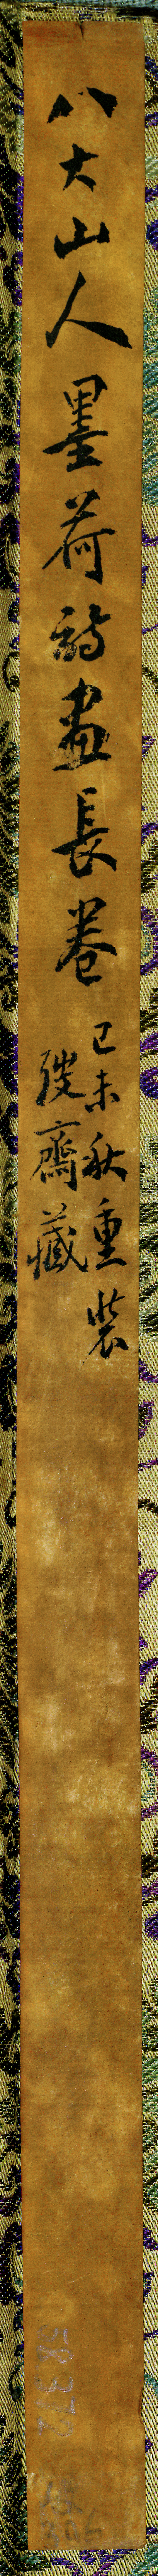 八大山人墨荷詩畫長卷
己未秋重裝
齋藏